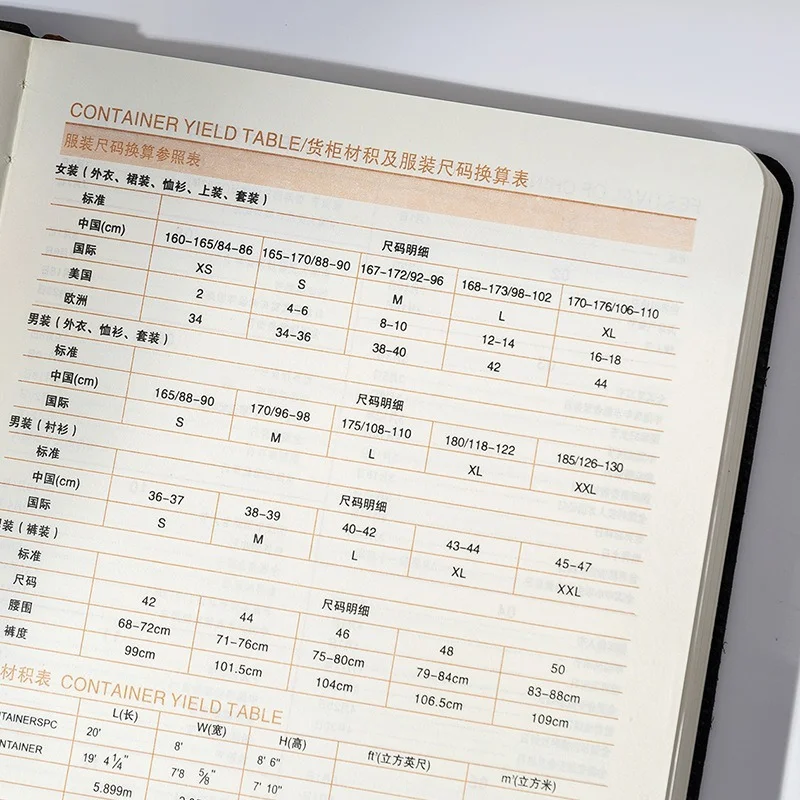 CONTAINER YIELD TABLE/货柜材积及服装尺码换算表
服装尺码换算参照表
女装(外衣、裙装、恤衫、上装、套装)
标准 尺码明细
中国(cm) 160-165/84-86 165-170/88-90 167-172/92-96 168-173/98-102 170-176/106-110
国际 XS S M L XL
美国 2 4-6 8-10 12-14 16-18
欧洲 34 34-36 38-40 42 44
男装(外衣、恤衫、套装)
标准 尺码明细
中国(cm) 165/88-90 170/96-98 175/108-110 180/118-122 185/126-130
国际 S M L XL XXL
男装(衬衫)
标准 尺码明细
中国(cm) 36-37 38-39 40-42 43-44 45-47
国际 S M L XL XXL
装(裤装)
标准 尺码明细
尺码 42 44 46 48 50
腰围 68-72cm 71-76cm 75-80cm 79-84cm 83-88cm
裤度 99cm 101.5cm 104cm 106.5cm 109cm
材积表 CONTAINER YIELD TABLE
TAINERSPC L(长) W(宽) H(高) ft'(立方英尺) m'(立方米)
NTAINER 20' 8' 8' 6"
19' 4 1/4" 7'8 5/8" 7' 10"
5.899m